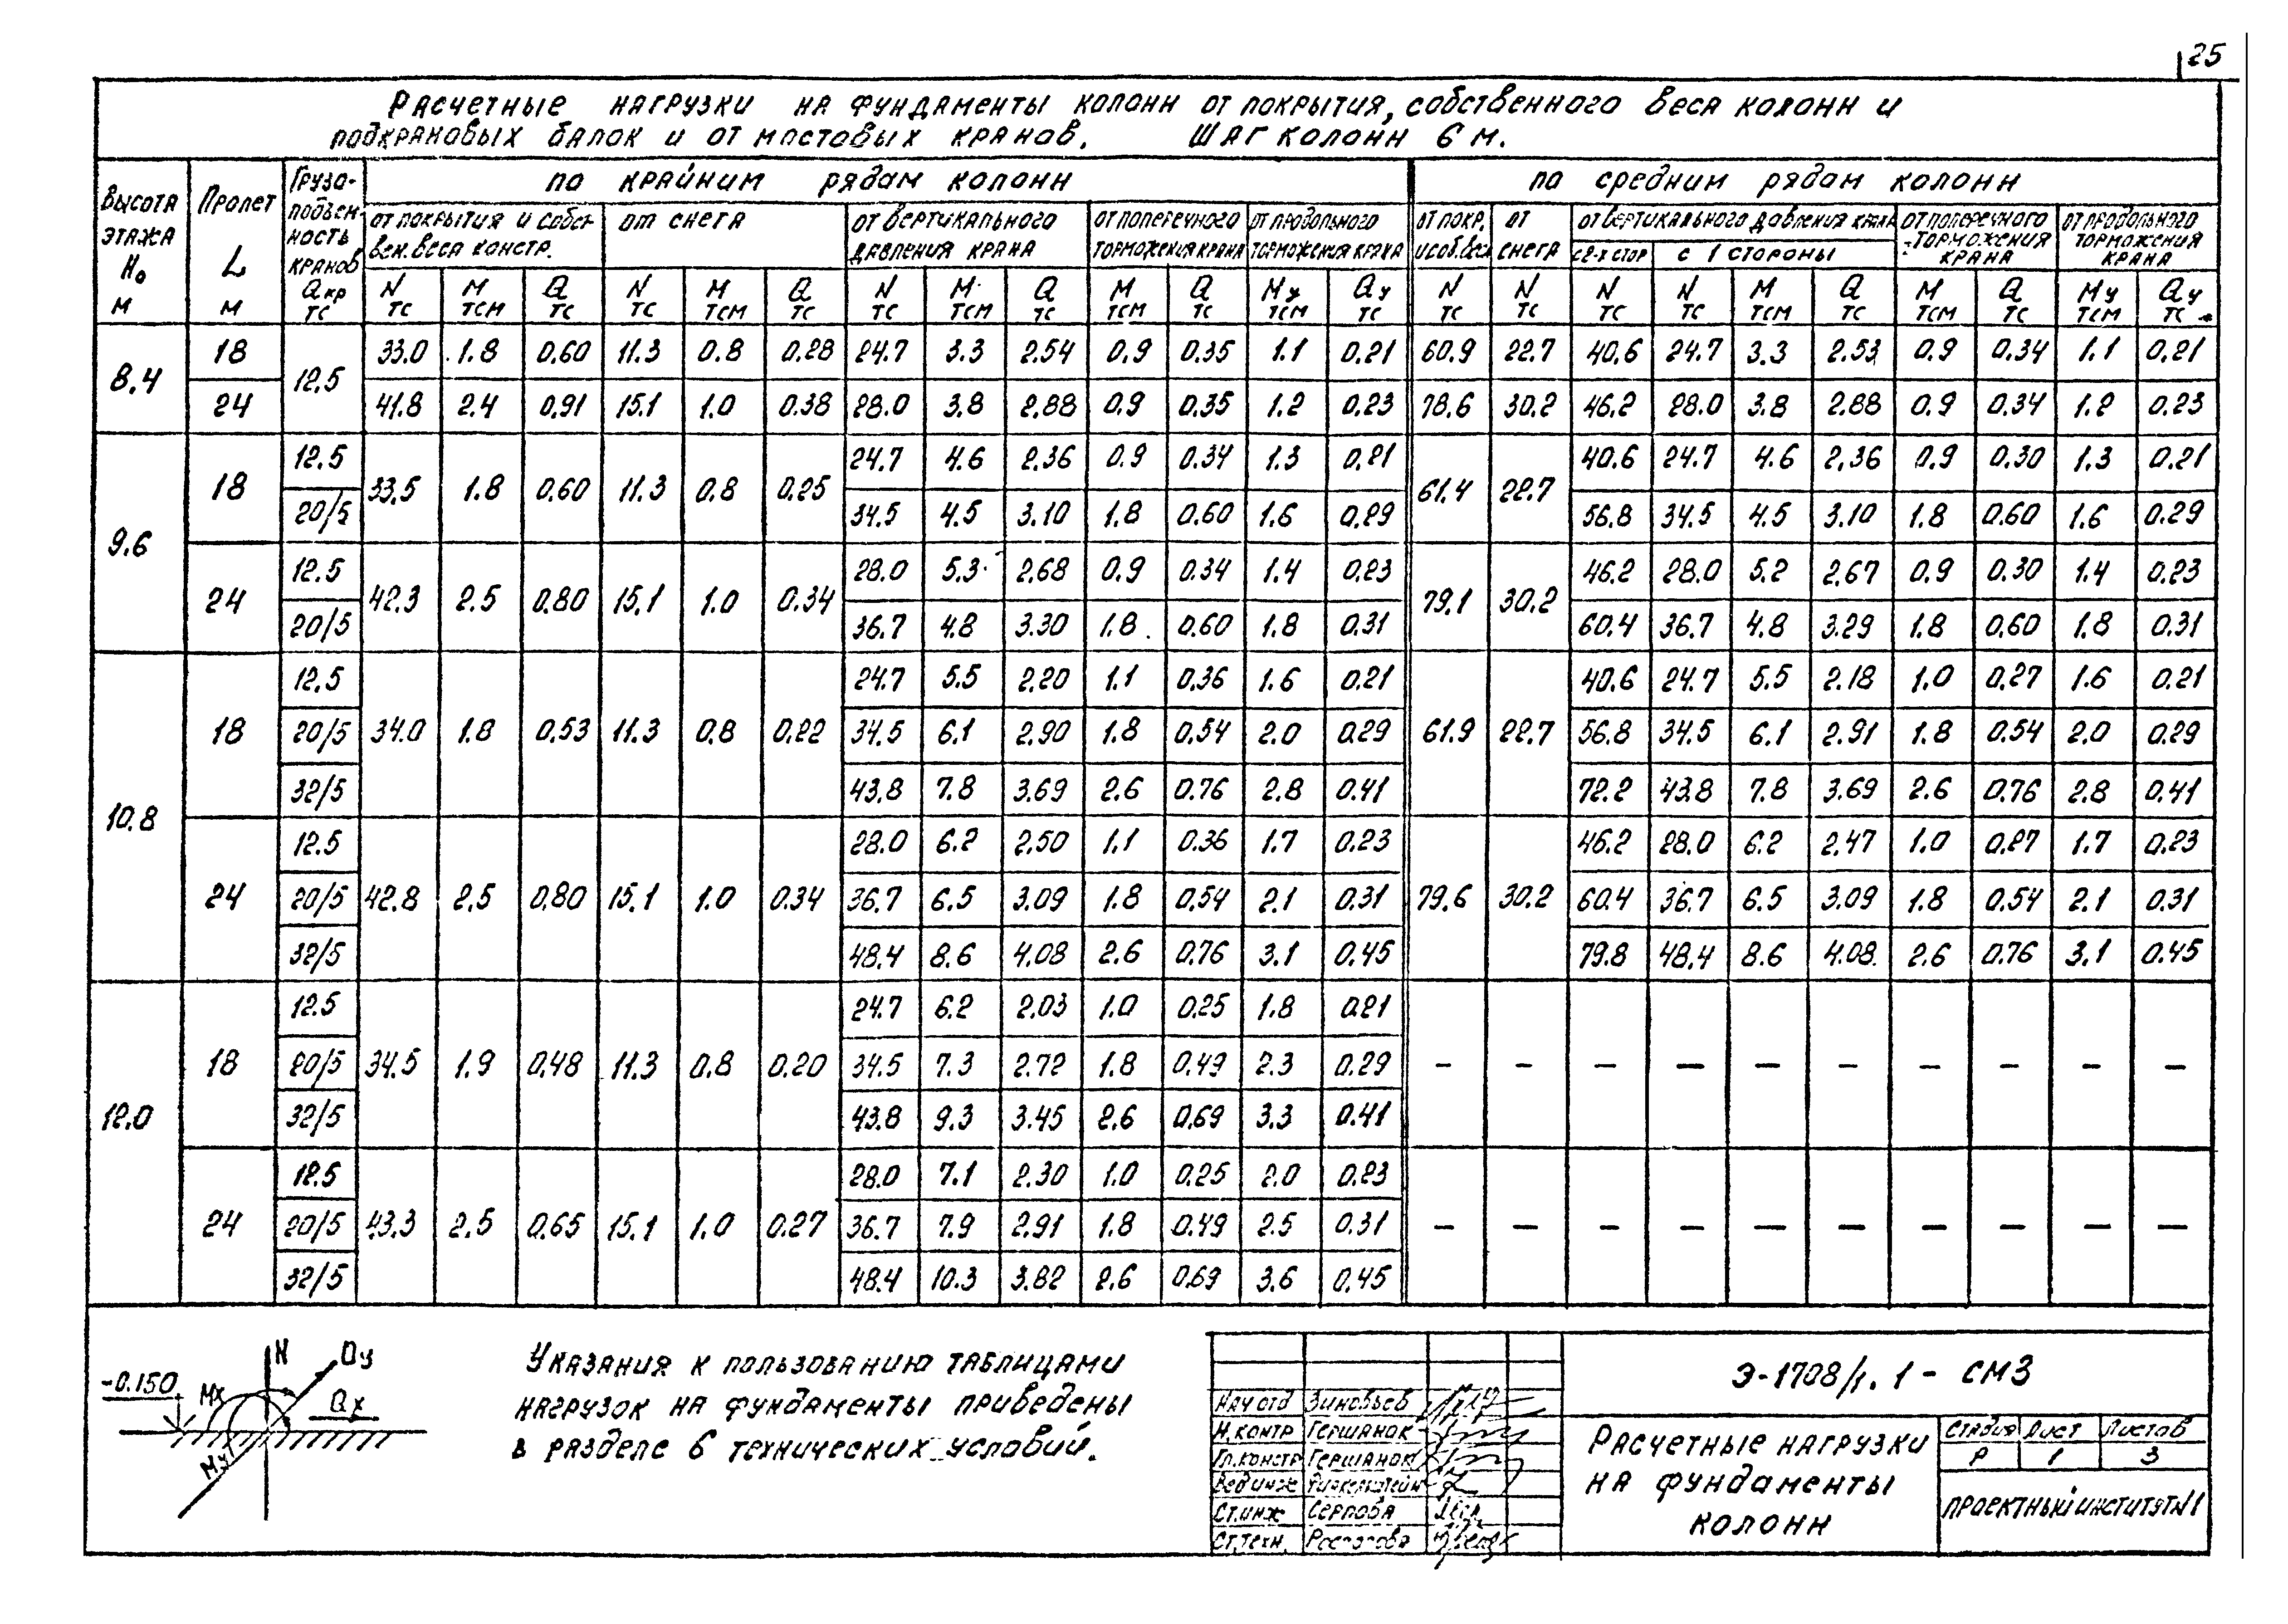 25
Расчетные нагрузки на фундаменты колонн от покрытия, собственного веса колонн и
подкрановых балок и от мостовых кранов. Шаг колонн 6 м.
Высота этажа Н₀ м
Пролет L м
Грузоподъемность кранов Qкр тс
по крайним рядам колонн
по средним рядам колонн
от покрытия и собствен. веса констр.
от снега
от вертикального давления крана
от поперечного торможения крана
от продольного торможения крана
от покр. и соб. веса
от снега
от вертикального давления крана
с 2-х стор
с 1 стороны
от поперечного торможения крана
от продольного торможения крана
N тс M тсм Q тс N тс M тсм Q тс N тс M тсм Q тс M тсм Q тс My тсм Qy тс N тс N тс N тс N тс M тсм Q тс M тсм Q тс My тсм Qy тс
8.4 18 12.5 33.0 1.8 0.60 11.3 0.8 0.28 24.7 3.3 2.54 0.9 0.35 1.1 0.21 60.9 22.7 40.6 24.7 3.3 2.53 0.9 0.34 1.1 0.21
24 41.8 2.4 0.91 15.1 1.0 0.38 28.0 3.8 2.88 0.9 0.35 1.2 0.23 78.6 30.2 46.2 28.0 3.8 2.88 0.9 0.34 1.2 0.23
9.6 18 12.5 33.5 1.8 0.60 11.3 0.8 0.25 24.7 4.6 2.36 0.9 0.34 1.3 0.21 61.4 22.7 40.6 24.7 4.6 2.36 0.9 0.30 1.3 0.21
20/5 34.5 4.5 3.10 1.8 0.60 1.6 0.29 56.8 34.5 4.5 3.10 1.8 0.60 1.6 0.29
24 12.5 42.3 2.5 0.80 15.1 1.0 0.34 28.0 5.3 2.68 0.9 0.34 1.4 0.23 79.1 30.2 46.2 28.0 5.2 2.67 0.9 0.30 1.4 0.23
20/5 36.7 4.8 3.30 1.8 0.60 1.8 0.31 60.4 36.7 4.8 3.29 1.8 0.60 1.8 0.31
10.8 18 12.5 24.7 5.5 2.20 1.1 0.36 1.6 0.21 40.6 24.7 5.5 2.18 1.0 0.27 1.6 0.21
20/5 34.0 1.8 0.53 11.3 0.8 0.22 34.5 6.1 2.90 1.8 0.54 2.0 0.29 61.9 22.7 56.8 34.5 6.1 2.91 1.8 0.54 2.0 0.29
32/5 43.8 7.8 3.69 2.6 0.76 2.8 0.41 72.2 43.8 7.8 3.69 2.6 0.76 2.8 0.41
24 12.5 28.0 6.2 2.50 1.1 0.36 1.7 0.23 46.2 28.0 6.2 2.47 1.0 0.27 1.7 0.23
20/5 42.8 2.5 0.80 15.1 1.0 0.34 36.7 6.5 3.09 1.8 0.54 2.1 0.31 79.6 30.2 60.4 36.7 6.5 3.09 1.8 0.54 2.1 0.31
32/5 48.4 8.6 4.08 2.6 0.76 3.1 0.45 79.8 48.4 8.6 4.08 2.6 0.76 3.1 0.45
12.0 18 12.5 24.7 6.2 2.03 1.0 0.25 1.8 0.21
20/5 34.5 1.9 0.48 11.3 0.8 0.20 34.5 7.3 2.72 1.8 0.49 2.3 0.29 – – – – – – – – – –
32/5 43.8 9.3 3.45 2.6 0.69 3.3 0.41
24 12.5 28.0 7.1 2.30 1.0 0.25 2.0 0.23
20/5 43.3 2.5 0.65 15.1 1.0 0.27 36.7 7.9 2.91 1.8 0.49 2.5 0.31 – – – – – – – – – –
32/5 48.4 10.3 3.82 2.6 0.69 3.6 0.45
N Qy
-0.150 Mx Qx
My
Указания к пользованию таблицами
нагрузок на фундаменты приведены
в разделе 6 технических условий.
Нач отд Зиновьев
Н.контр Гершанок
Гл.констр Гершанок
Вед инж
Ст.инж Серпова
Ст.техн.
Э-1708/1.1 - СМ3
Расчетные нагрузки
на фундаменты
колонн
Стадия Лист Листов
Р 1 3
Проектный институт №1